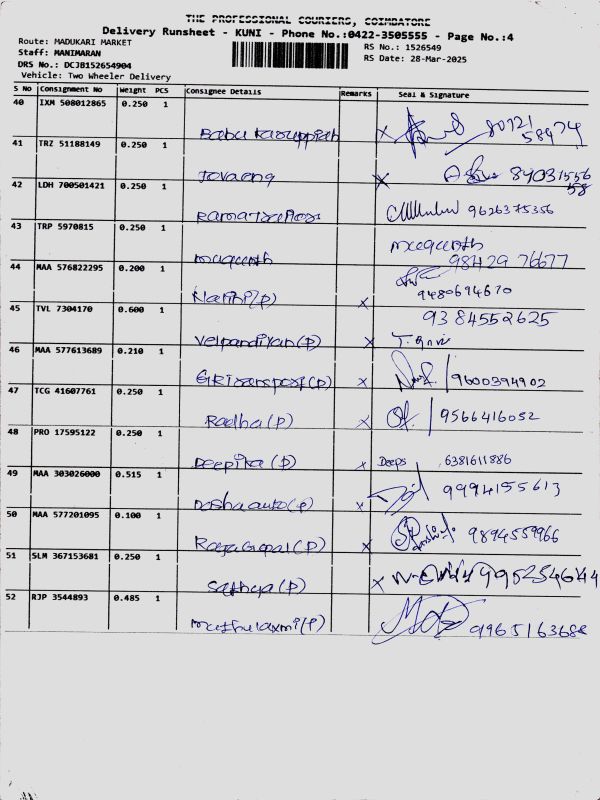 THE PROFESSIONAL COURIERS, COIMBATORE
Delivery Runsheet - KUNI - Phone No.:0422-3505555 - Page No.:4
Route: MADUKARI MARKET
RS No.: 1526549
Staff: MANIMARAN
RS Date: 28-Mar-2025
DRS No.: DCJB152654904
Vehicle: Two Wheeler Delivery
S No Consignment No Weight PCS Consignee Details Remarks Seal & Signature
40 IXM 508012865 0.250 1
Babu Karuppiah x 80721
58974
41 TRZ 51188149 0.250 1
Jovaeng x 84031556
58
42 LDH 700501421 0.250 1
9626375356
43 TRP 5970815 0.250 1
98429 76677
44 MAA 576822295 0.200 1
Nambi(p) x 9480694670
45 TVL 7304170 0.600 1 9384552625
Velpandiyan(p) x
46 MAA 577613689 0.210 1
GRTransport(p) x 9600394902
47 TCG 41607761 0.250 1
Radha(p) x 9566416052
48 PRO 17595122 0.250 1
Deepika (p) x Deeps 6381611886
49 MAA 303026000 0.515 1
Doshaauto(p) x 9994155613
50 MAA 577201095 0.100 1
RajaGopal(p) x 9894559966
51 SLM 367153681 0.250 1
Sathya(p) x
52 RJP 3544893 0.485 1
Muthulaxmi(p) 9965163688